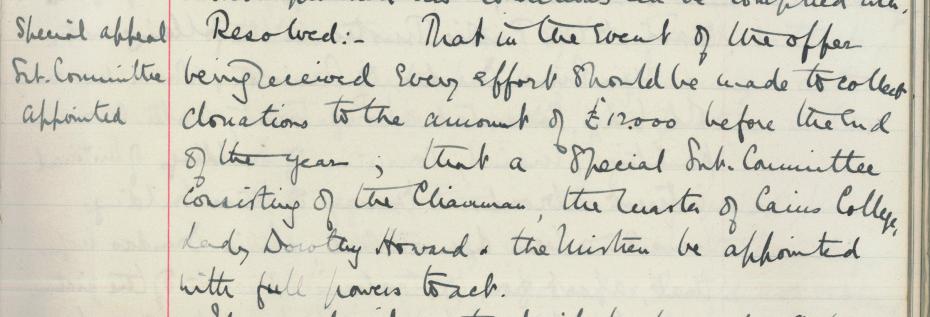 can be complied with.
Special appeal Resolved:- That in the Event of the offer
Sub. Committee being received Every effort should be made to collect
appointed donations to the amount of £12.000 before the End
of the year ; that a Special Sub. Committee
Consisting of the Chairman, the Master of Caius College,
Lady Dorothy Howard & the Mistress be appointed
with full powers to act.